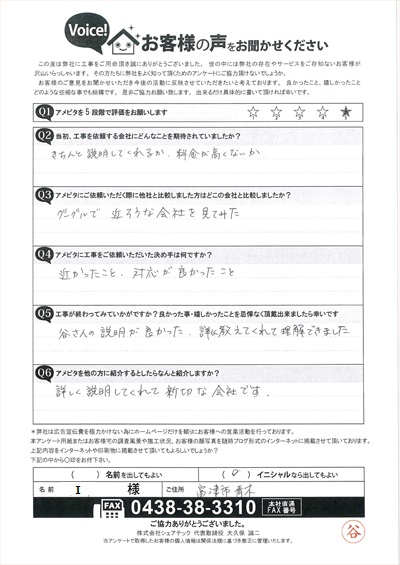 Voice! お客様の声をお聞かせください
この度は弊社に工事をご用命頂き誠にありがとうございました。 世の中には弊社の存在やサービスをご存知ないお客様が
沢山いらっしゃいます。 その方たちに弊社をよく知って頂くためのアンケートにご協力頂けないでしょうか。
お客様のご意見をお聞かせいただき今後の活動に反映させていただきたいと考えております。 良かったこと、嬉しかったこと
どのような些細な事でも結構です。 是非ご協力お願い致します。 出来るだけ具体的に書いて頂ければ幸いです。
Q1 アメピタを5段階で評価をお願いします ☆ ☆ ☆ ☆ ★
Q2 当初、工事を依頼する会社にどんなことを期待されていましたか?
きちんと説明してくれるか、料金が高くないか
Q3 アメピタにご依頼いただく際に他社と比較しました方はどこの会社と比較しましたか?
グーグルで 近そうな会社を見てみた
Q4 アメピタに工事をご依頼いただいた決め手は何ですか?
近かったこと、対応が良かったこと
Q5 工事が終わってみていかがですか?良かった事・嬉しかったことを忌憚なく頂戴出来ましたら幸いです
谷さんの説明が良かった、詳しく教えてくれて理解できました
Q6 アメピタを他の方に紹介するとしたらなんと紹介しますか?
詳しく説明してくれて親切な会社です。
*弊社は広告宣伝費を極力かけない為にホームページだけを頼りにお客様への営業活動を行っております。
本アンケート用紙またはお客様宅の調査風景や施工状況、お客様の顔写真を随時ブログ形式のインターネットに掲載させて頂いております。
上記内容をインターネットや印刷物に掲載させて頂いてもよろしいでしょうか?
下記の中から〇印をお付下さい。
( ) 名前を出してもよい ( 〇 ) イニシャルなら出してもよい
名 前 I 様 ご住所 富津市青木
FAX 0438-38-3310 本社直通 FAX番号
ご協力ありがとうございました。
株式会社シェアテック 代表取締役 大久保 誠二
※アンケートで取得したお客様の個人情報は関係法規に基づき厳正に管理いたします。
谷